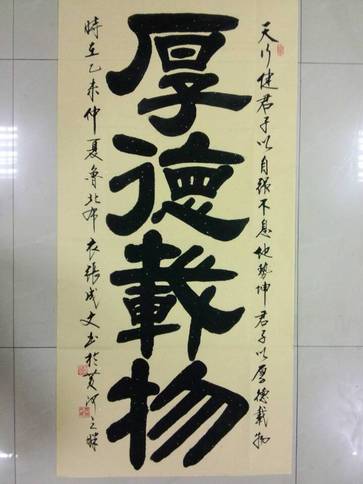 天行健君子以自强不息地势坤君子以厚德载物
厚德載物
時在乙未仲夏魯北布衣張成文书於黄河之畔